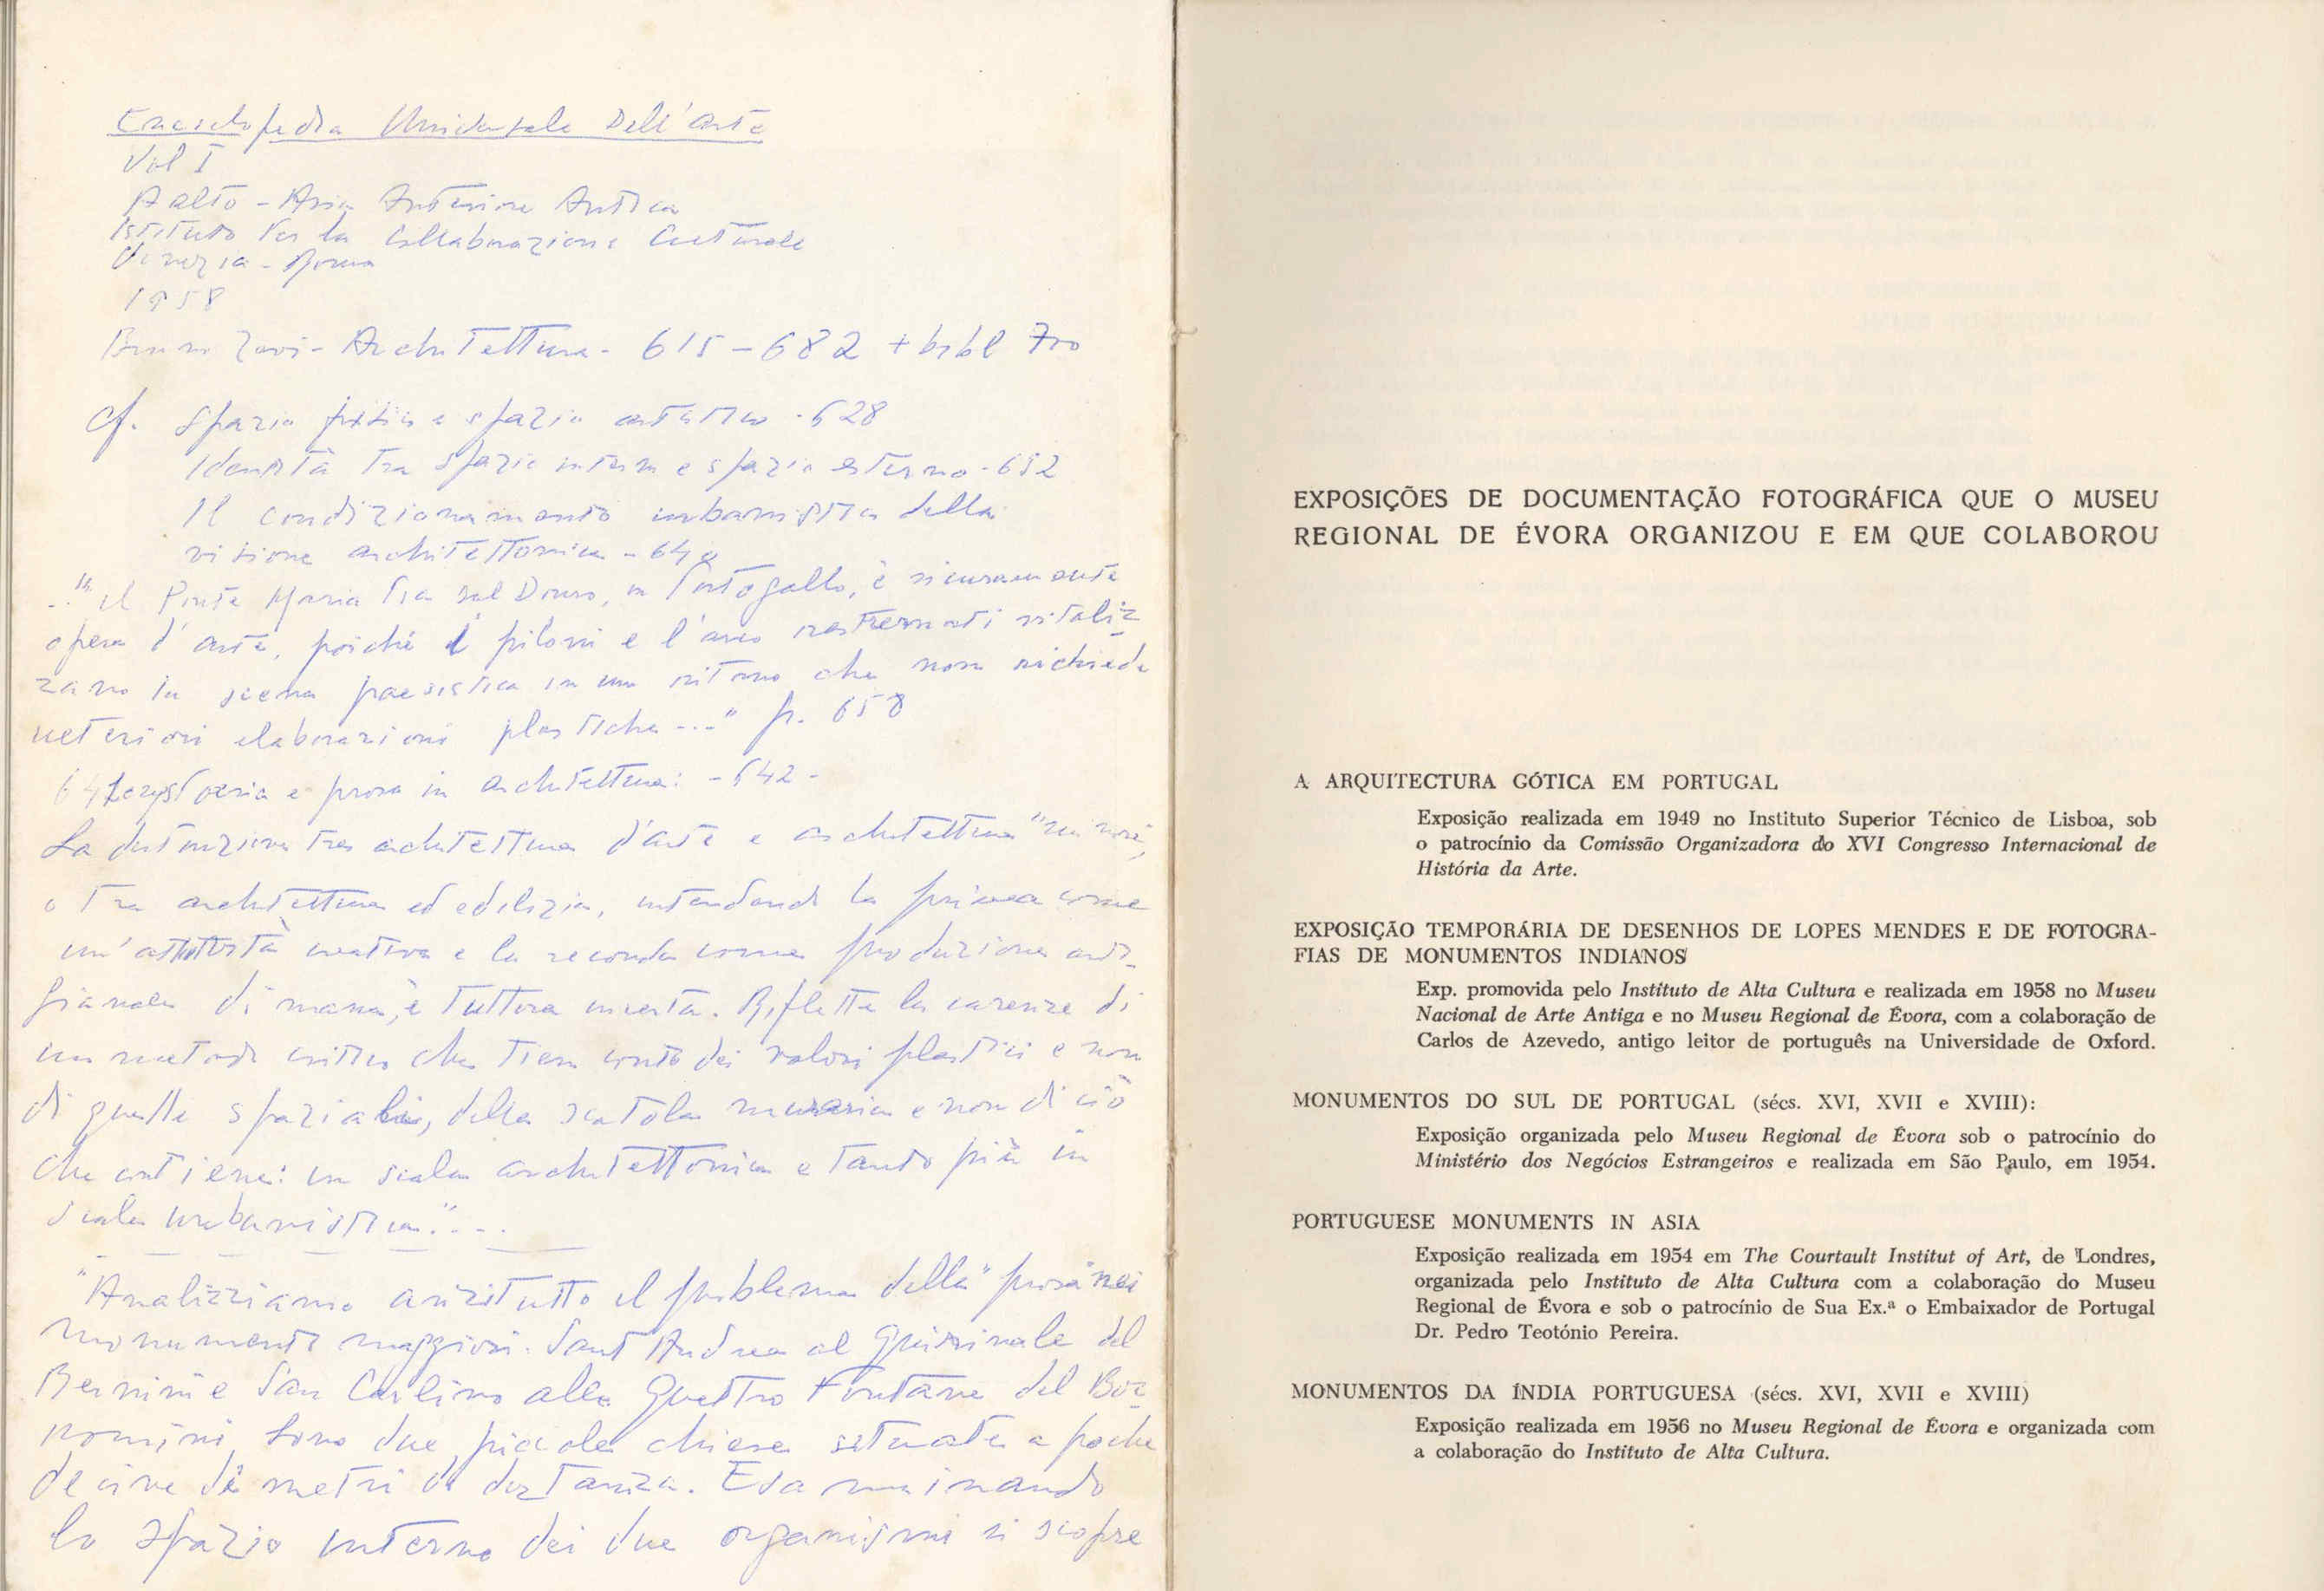 Enciclopedia Universale Dell'Arte
Vol I
Aalto - Asia Anteriore Antica
Istituto Per la Collaborazione Culturale
Venezia - Roma
1958
Bruno Zevi - Architettura - 615 - 682 + bibl 700
cf. Spazio fisico e spazio artistico - 628
Identità tra spazio interno e spazio esterno - 632
Il condizionamento urbanistico della
visione architettonica - 64
..."il Ponte Maria Pia sul Douro, in Portogallo, è sicuramente
opera d'arte, poiché i piloni e l'arco rastremati vitaliz
zano la scena paesistica in un ritmo che non richiede
ulteriori elaborazioni plastiche ..." p. 658
poesia e prosa in architettura: - 642 -
La distinzione tra architettura d'arte e architettura "minore",
o tra architettura ed edilizia, intendendo la prima come
un'attività creativa e la seconda come produzione arti-
gianale di massa, è tuttora incerta. Riflette la carenza di
un metodo critico che tien conto dei valori plastici e non
di quelli spaziali, della scatola muraria e non di ciò
che contiene: in scala architettonica e tanto più in
scala urbanistica." ...
"Analizziamo anzitutto il problema della "prosa" nei
monumenti maggiori. Sant'Andrea al Quirinale del
Bernini e San Carlino alle Quattro Fontane del Bor
romini, sono due piccole chiese situate a poche
decine di metri di distanza. Esaminando
lo spazio interno dei due organismi si scopre
EXPOSIÇÕES DE DOCUMENTAÇÃO FOTOGRÁFICA QUE O MUSEU
REGIONAL DE ÉVORA ORGANIZOU E EM QUE COLABOROU
A ARQUITECTURA GÓTICA EM PORTUGAL
Exposição realizada em 1949 no Instituto Superior Técnico de Lisboa, sob
o patrocínio da Comissão Organizadora do XVI Congresso Internacional de
História da Arte.
EXPOSIÇÃO TEMPORÁRIA DE DESENHOS DE LOPES MENDES E DE FOTOGRA-
FIAS DE MONUMENTOS INDIANOS
Exp. promovida pelo Instituto de Alta Cultura e realizada em 1958 no Museu
Nacional de Arte Antiga e no Museu Regional de Évora, com a colaboração de
Carlos de Azevedo, antigo leitor de português na Universidade de Oxford.
MONUMENTOS DO SUL DE PORTUGAL (sécs. XVI, XVII e XVIII):
Exposição organizada pelo Museu Regional de Évora sob o patrocínio do
Ministério dos Negócios Estrangeiros e realizada em São Paulo, em 1954.
PORTUGUESE MONUMENTS IN ASIA
Exposição realizada em 1954 em The Courtault Institut of Art, de Londres,
organizada pelo Instituto de Alta Cultura com a colaboração do Museu
Regional de Évora e sob o patrocínio de Sua Ex.ª o Embaixador de Portugal
Dr. Pedro Teotónio Pereira.
MONUMENTOS DA ÍNDIA PORTUGUESA (sécs. XVI, XVII e XVIII)
Exposição realizada em 1956 no Museu Regional de Évora e organizada com
a colaboração do Instituto de Alta Cultura.